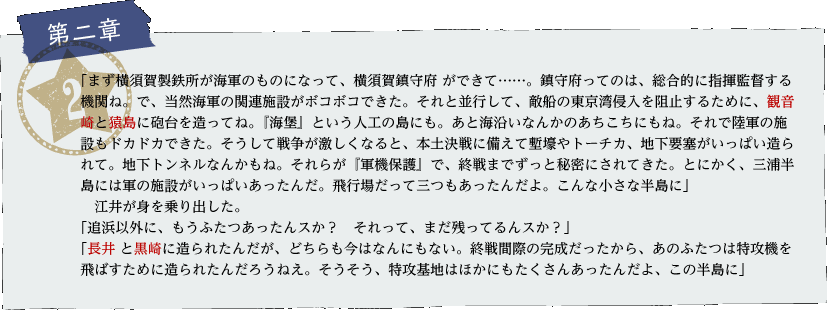 第二章
2
「まず横須賀製鉄所が海軍のものになって、横須賀鎮守府 ができて……。鎮守府ってのは、総合的に指揮監督する
機関ね。で、当然海軍の関連施設がボコボコできた。それと並行して、敵船の東京湾侵入を阻止するために、観音
崎と猿島に砲台を造ってね。『海堡』という人工の島にも。あと海沿いなんかのあちこちにもね。それで陸軍の施
設もドカドカできた。そうして戦争が激しくなると、本土決戦に備えて塹壕やトーチカ、地下要塞がいっぱい造ら
れて。地下トンネルなんかもね。それらが『軍機保護』で、終戦までずっと秘密にされてきた。とにかく、三浦半
島には軍の施設がいっぱいあったんだ。飛行場だって三つもあったんだよ。こんな小さな半島に」
　江井が身を乗り出した。
「追浜以外に、もうふたつあったんスか？　それって、まだ残ってるんスか？」
「長井 と黒崎に造られたんだが、どちらも今はなんにもない。終戦間際の完成だったから、あのふたつは特攻機を
飛ばすために造られたんだろうねえ。そうそう、特攻基地はほかにもたくさんあったんだよ、この半島に」